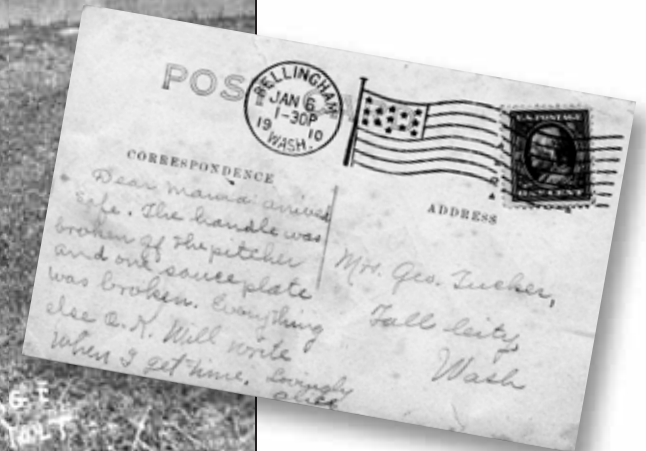 POS
BELLINGHAM
JAN 6
1-30P
19 10
WASH.
U.S. POSTAGE
CORRESPONDENCE
Dear Mama: arrived
safe. The handle was
broken of the pitcher
and one sauce plate
was broken. Everything
else O.K. Will write
when I get time. Lovingly
ADDRESS
Mrs. Geo. Tucker,
Fall City,
Wash
G E
TOLT